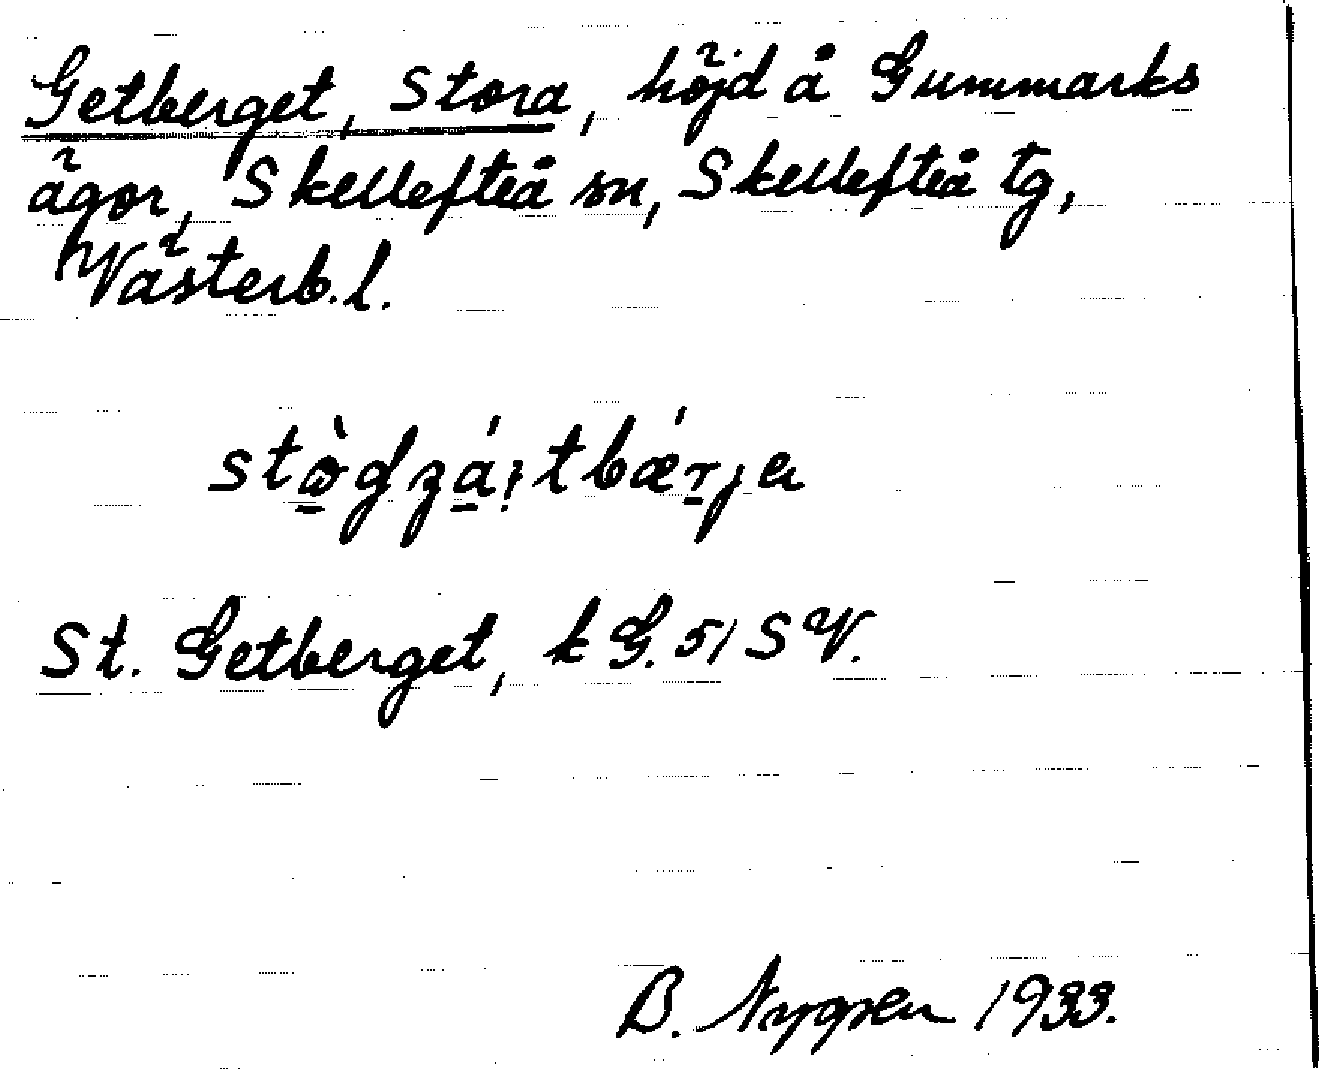 Getberget, Stora, höjd å Gummarks
ägor, Skellefteå sn, Skellefteå tg,
Västerb.l.
St. Getberget, k G. 51 SV.
B. Nygren 1933.